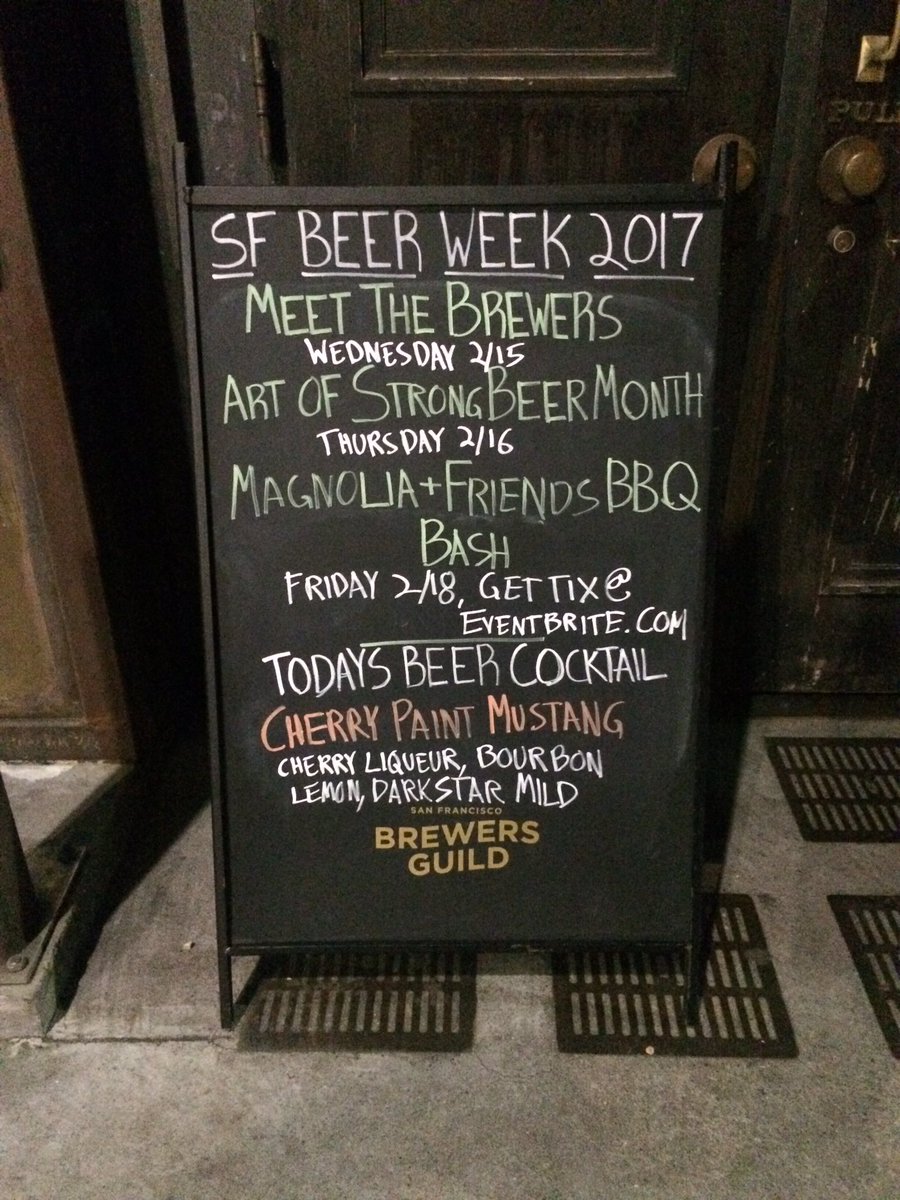 SF BEER WEEK 2017
MEET THE BREWERS
WEDNESDAY 2/15
ART OF STRONG BEER MONTH
THURSDAY 2/16
MAGNOLIA + FRIENDS BBQ
BASH
FRIDAY 2/18, GET TIX @
EVENTBRITE.COM
TODAYS BEER COCKTAIL
CHERRY PAINT MUSTANG
CHERRY LIQUEUR, BOURBON
LEMON, DARKSTAR MILD
SAN FRANCISCO
BREWERS
GUILD
PULL